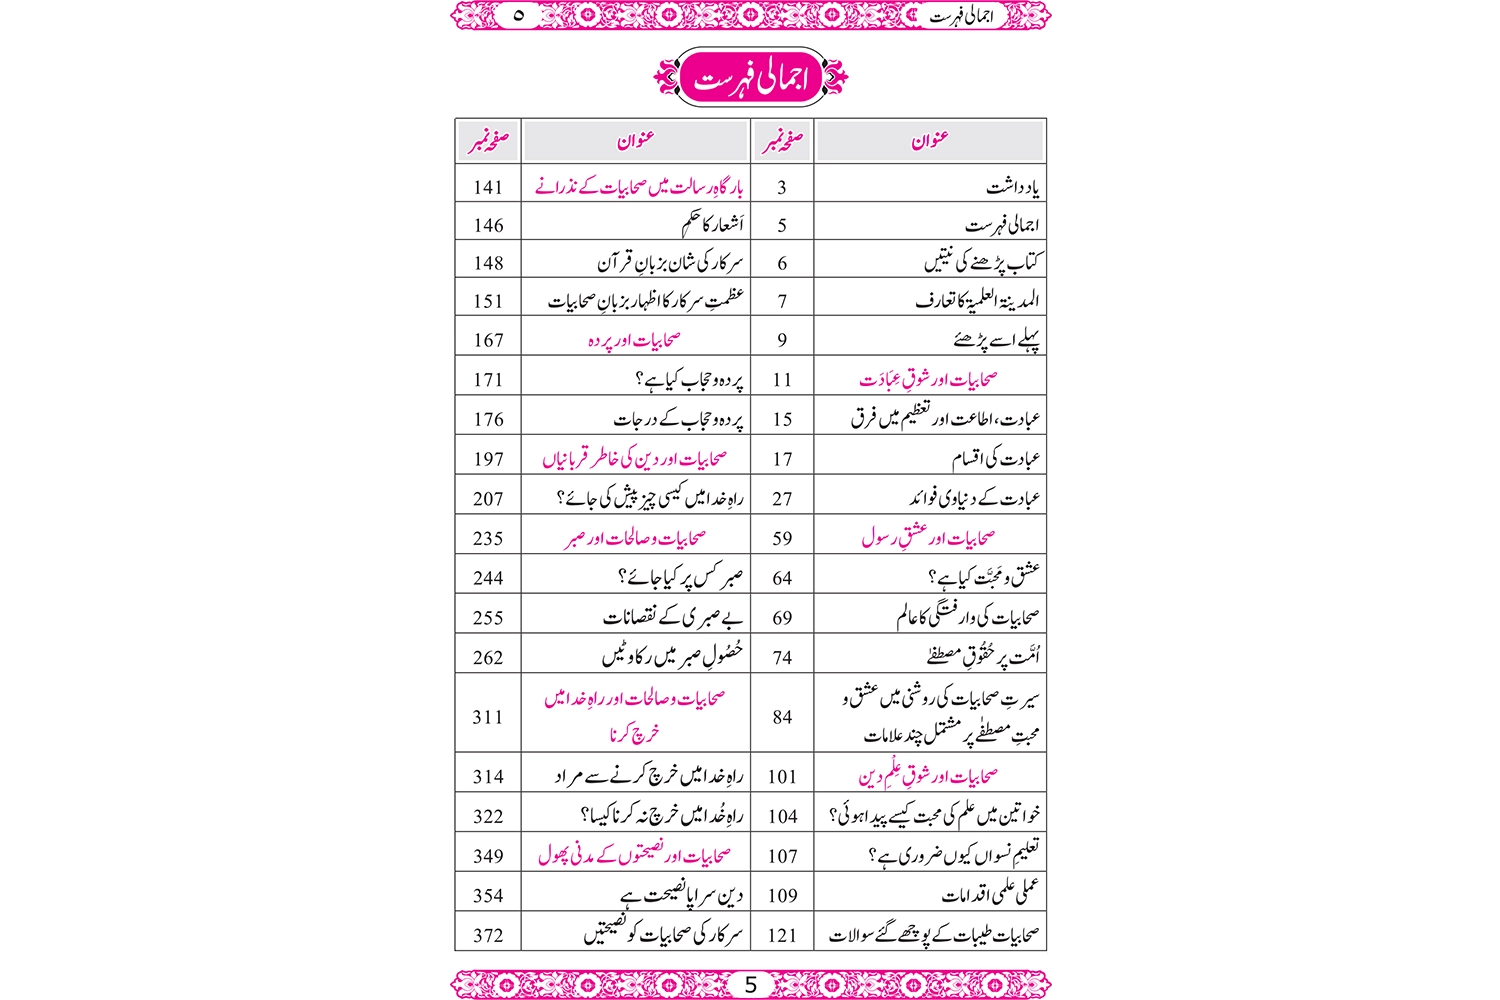 اجمالی فہرست ۵
اجمالی فہرست
عنوان صفحہ نمبر عنوان صفحہ نمبر
یادداشت 3 بارگاہِ رسالت میں صحابیات کے نذرانے 141
اجمالی فہرست 5 اَشعار کا حکم 146
کتاب پڑھنے کی نیتیں 6 سرکار کی شان بزبانِ قرآن 148
المدینۃ العلمیۃ کا تعارف 7 عظمتِ سرکار کا اظہار بزبانِ صحابیات 151
پہلے اسے پڑھئے 9 صحابیات اور پردہ 167
صحابیات اور شوقِ عِبَادَت 11 پردہ و حجاب کیا ہے؟ 171
عبادت، اطاعت اور تعظیم میں فرق 15 پردہ و حجاب کے درجات 176
عبادت کی اقسام 17 صحابیات اور دین کی خاطر قربانیاں 197
عبادت کے دنیاوی فوائد 27 راہِ خدا میں کیسی چیز پیش کی جائے؟ 207
صحابیات اور عشقِ رسول 59 صحابیات و صالحات اور صبر 235
عشق و مَحبَّت کیا ہے؟ 64 صبر کس پر کیا جائے؟ 244
صحابیات کی وارفتگی کا عالم 69 بے صبری کے نقصانات 255
اُمَّت پر حُقُوقِ مصطفےٰ 74 حُصُولِ صبر میں رکاوٹیں 262
سیرتِ صحابیات کی روشنی میں عشق و
محبتِ مصطفےٰ پر مشتمل چند علامات 84 صحابیات و صالحات اور راہِ خدا میں
خرچ کرنا 311
صحابیات اور شوقِ عِلْمِ دین 101 راہِ خدا میں خرچ کرنے سے مراد 314
خواتین میں علم کی محبت کیسے پیدا ہوئی؟ 104 راہِ خُدا میں خرچ نہ کرنا کیسا؟ 322
تعلیمِ نسواں کیوں ضروری ہے؟ 107 صحابیات اور نصیحتوں کے مدنی پھول 349
عملی علمی اقدامات 109 دین سراپا نصیحت ہے 354
صحابیات طیبات کے پوچھے گئے سوالات 121 سرکار کی صحابیات کو نصیحتیں 372
5